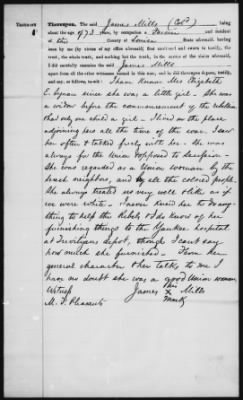 Thereupon, The said James Mills (Cold.) being
about the age of 73 years, by occupation a Farmer and resident
in the county of Louisa State aforesaid, having
been by me (by virtue of my office aforesaid) first cautioned and sworn to testify the
truth, the whole truth, and nothing but the truth, in the matter of the claim aforesaid,
I did carefully examine the said James Mills
apart from all the other witnesses named in this case, and he did thereupon depose, testify,
and say, as follows, viz: I have known Mrs Elizabeth
E. since she was a little girl. She was
a widow before the commencement of the rebellion
had only one child a girl. I lived on the place
adjoining hers all the time of the war. I saw
her often & talked freely with her. She was
always for the Union & opposed to Secession.
She was regarded as a Union woman by the
Secesh neighbors, and by all the colored people.
She always treated us very well & like as if
we were white. I never knew her to do any-
thing to help the Rebels & I do know of her
furnishing things to the Yankee hospital
at Trevilians depot, though I cant say
how much she furnished. From her
general character & her talks to me I
have no doubt she was a good Union woman
Witness
James his X mark Mills
M. F. Pleasants